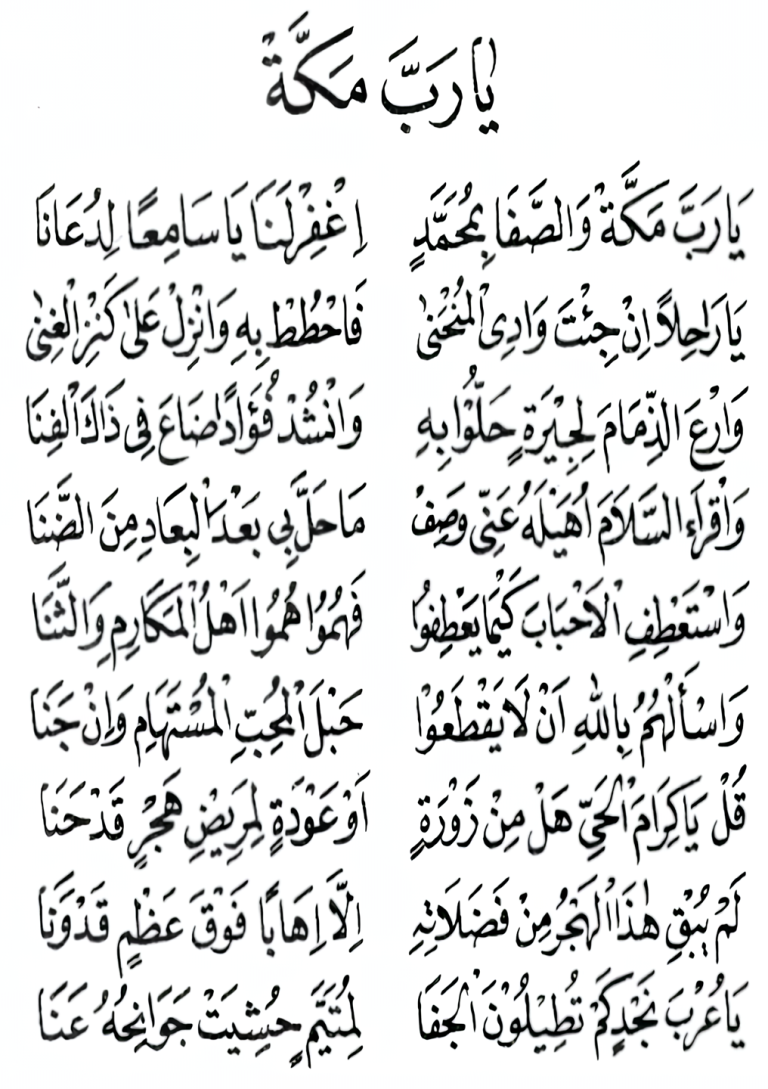 يَارَبَّ مَكَّةْ
يَارَبَّ مَكَّةْ وَالصَّفَا بِمُحَمَّدٍ اِغْفِرْلَنَا يَا سَامِعًا لِدُعَانَا
يَارَاحِلاً اِنْ جِئْتَ وَادِى الْمُنْحَنٰى فَاحْطُطْ بِهِ وَانْزِلْ عَلٰى كَنْزِ الْغِنٰى
وَارْعَ الذِّمَامَ لِجِيْرَةٍ حَلُّوْا بِهِ وَانْشُدْ فُؤَادًا ضَاعَ فِى ذَاكَ الْفِنَا
وَاقْرَاءِ السَّلاَمَ اُهَيْلَهُ عَنِّى وَصِفْ مَاحَلَّ بِى بَعْدَ الْبِعَادِ مِنَ الضَّنَا
وَاسْتَعْطِفِ الْاَحْبَابَ كَيْمَا يَعْطِفُوْا فَهُمُوْا هُمُوْا اَهْلُ الْمَكَارِمِ وَالثَّنَا
وَاسْأَلْهُمُ بِاللهِ اَنْ لَايَقْطَعُوْا حَبْلَ الْمُحِبِّ الْمُسْتَهَامِ وَاِنْ جَنَا
قُلْ يَاكِرَامَ الْحَيِّ هَلْ مِنْ زَوْرَةٍ اَوْ عَوْدَةٍ لِمَرِيْضِ هَجْرٍ قَدْحَنَا
لَمْ يُبْقِ هٰذَا الْهَجْرُ مِنْ فَضَلَاتِهِ اِلَّا اِهَابًا فَوْقَ عَظْمٍ قَدْوَنَا
يَاعُرْبَ نَجْدٍكَمْ تُطِيْلُوْنَ الْجَفَا لِمُتَيَّمٍ حُشِيَتْ جَوَانِحُهُ عَنَا